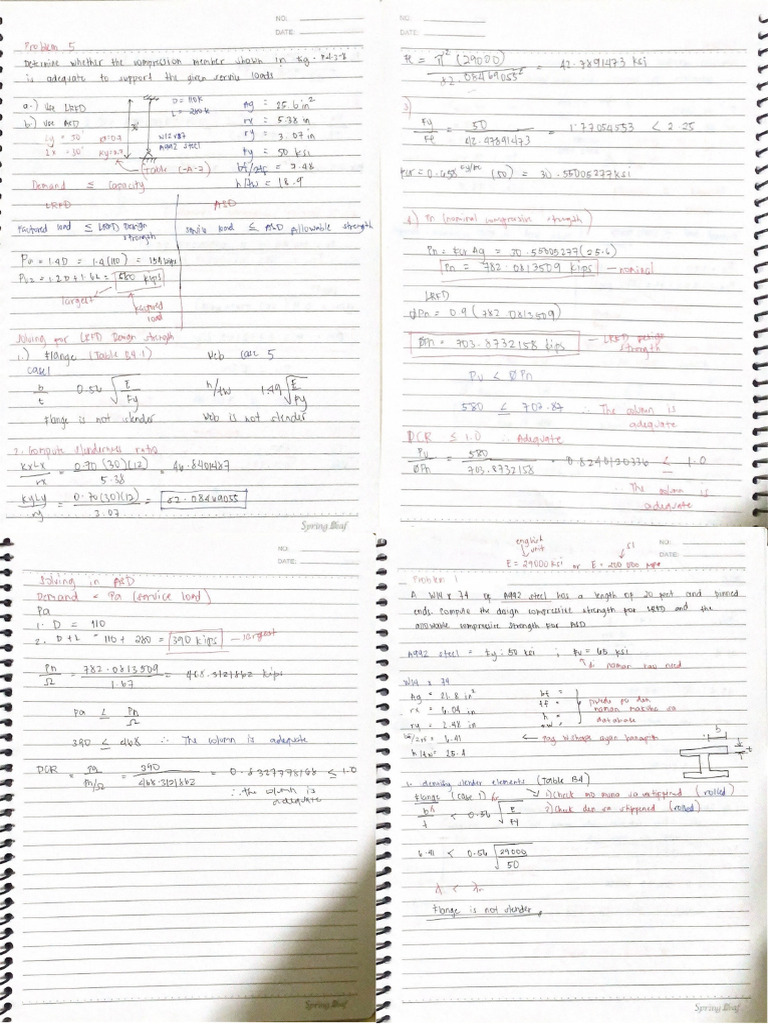 NO:
DATE:
Problem 5
Determine whether the compression member shown in fig.
is adequate to support the given service loads
a.) Use LRFD
b.) Use ASD
D = 110k
W12x87
A992 steel
Ag = 25.6 in²
rx = 5.38 in
ry = 3.07 in
Fy = 50 ksi
h/tw = 18.9
Demand ≤ Capacity
LRFD ASD
Factored load ≤ LRFD Design strength
Service load ≤ ASD allowable strength
Pu = 1.4D = 1.4(110) = 154 kips
Pu2 = 1.2D + 1.6L = 580 kips
largest
factured load
Solving for LRFD Design strength
1.) Flange (Table B4.1) Web case 5
case 1
b/t 0.56 √E/Fy h/tw 1.49 √E/Fy
Flange is not slender Web is not slender
2. Compute slenderness ratio
KxLx/rx = 0.70 (30)(12)/5.38 = 46.8401487
KyLy/ry = 0.70(30)(12)/3.07 = 82.08469055
Spring Leaf
NO:
DATE:
Fe = π² (29000)/82.08469055² = 42.47891473 ksi
3)
Fy/Fe = 50/42.47891473 = 1.177054553 < 2.25
Fcr = 0.658^Fy/Fe (50) = 30.55005277 ksi
4) Pn (nominal compression strength)
Pn = Fcr Ag = 30.55005277 (25.6)
Pn = 782.0813509 kips — nominal
LRFD
ϕPn = 0.9 (782.0813509)
ϕPn = 703.8732158 kips — LRFD Design strength
Pu < ϕPn
580 ≤ 703.87 ∴ The column is adequate
DCR ≤ 1.0 ∴ Adequate
Pu/ϕPn = 580/703.8732158 = 0.8240120336 ≤ 1.0
∴ The column is adequate
Solving in ASD
Demand = Pa (service load)
Pa
1. D = 110
2. D + L = 110 + 280 = 390 kips — largest
Pn/Ω = 782.0813509/1.67 = 468.3121862 kips
Pa ≤ Pn/Ω
390 ≤ 468 ∴ The column is adequate
DCR = Pa/Pn/Ω = 390/468.3121862 = 0.8327778168 ≤ 1.0
∴ the column is adequate
Spring Leaf
NO:
DATE:
english unit
SI
E = 29000 ksi or E = 200 000 MPa
Problem 1
A W14 x 74 of A992 steel has a length of 20 feet and pinned
ends. Compute the design compressive strength for LRFD and the
allowable compressive strength for ASD
A992 steel = Fy: 50 ksi ; Fu = 65 ksi
W14 x 74
Ag = 21.8 in²
rx = 6.04 in
ry = 2.48 in
bf/2tf = 6.41
h/tw = 25.4
bf =
tf =
h =
tw =
database
b
t
1. Identify slender elements (Table B4)
Flange (case 1)
(rolled)
b/t < 0.56 √E/Fy
6.41 < 0.56 √29000/50
λ < λr
Flange is not slender
Spring Leaf